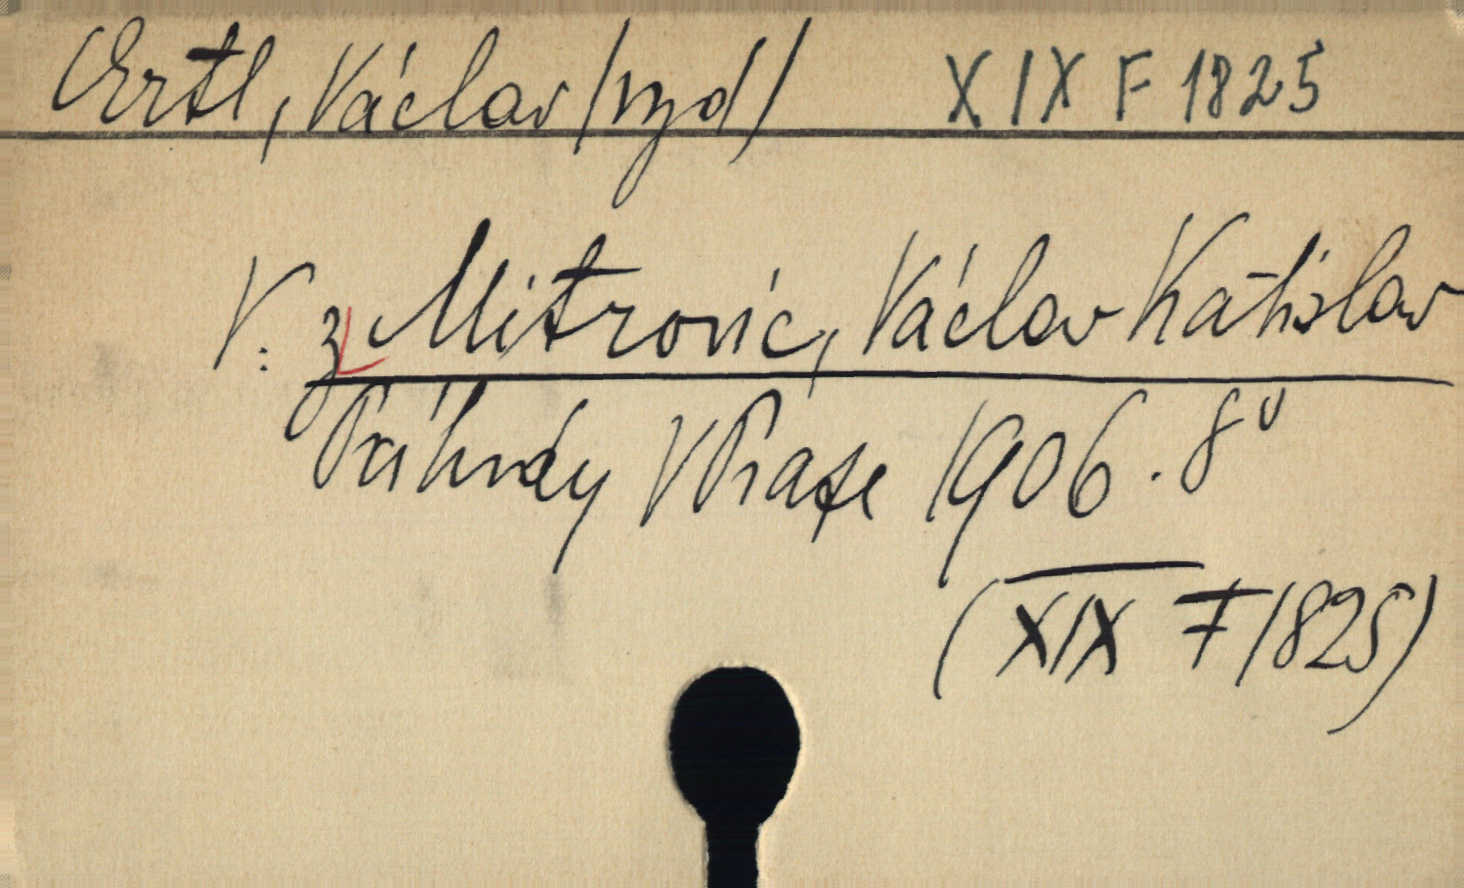 Ertl, Václav /vyd/ XIX F 1825
V: z Mitrovic, Václav Vratislav
Příhody V Praze 1906. 8°
(XIX F 1825)